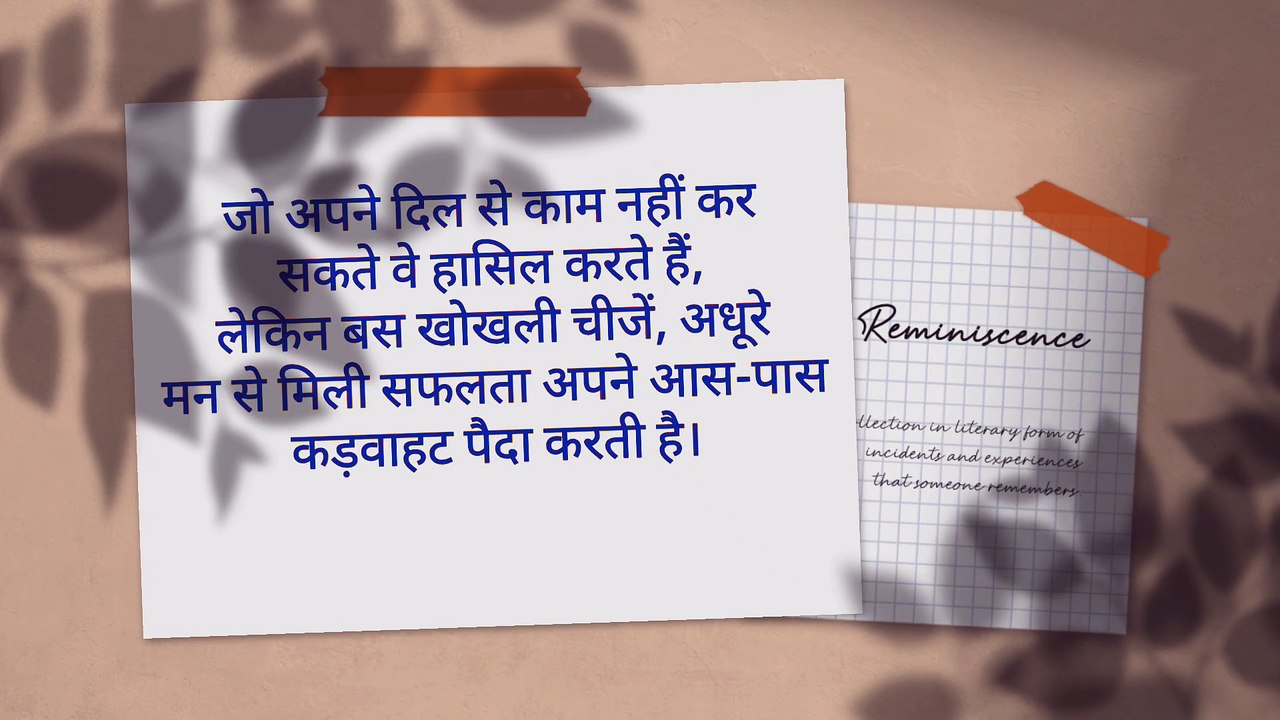 जो अपने दिल से काम नहीं कर
सकते वे हासिल करते हैं,
लेकिन बस खोखली चीजें, अधूरे
मन से मिली सफलता अपने आस-पास
कड़वाहट पैदा करती है।
Reminiscence
llection in literary form of
incidents and experiences
that someone remembers.